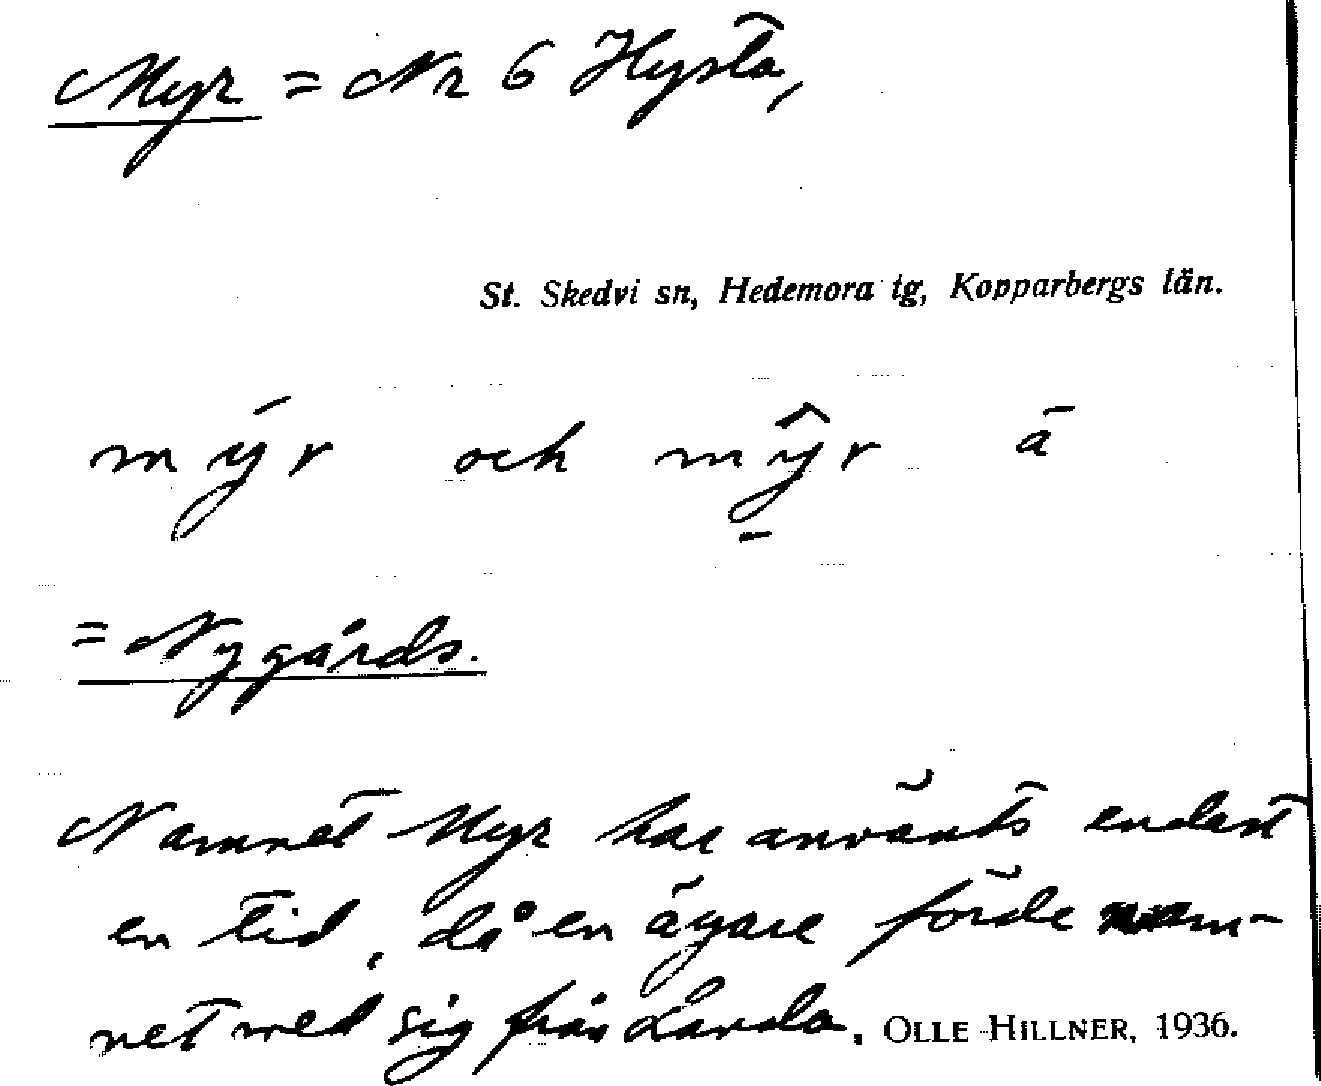 Myr = Nr 6 Hysta,
St. Skedvi sn, Hedemora tg, Kopparbergs län.
mýr och mŷr ā
= Nygårds.
Namnet Myr har använts endast
en tid, då en ägare förde nam-
net med sig från Landa. OLLE HILLNER, 1936.